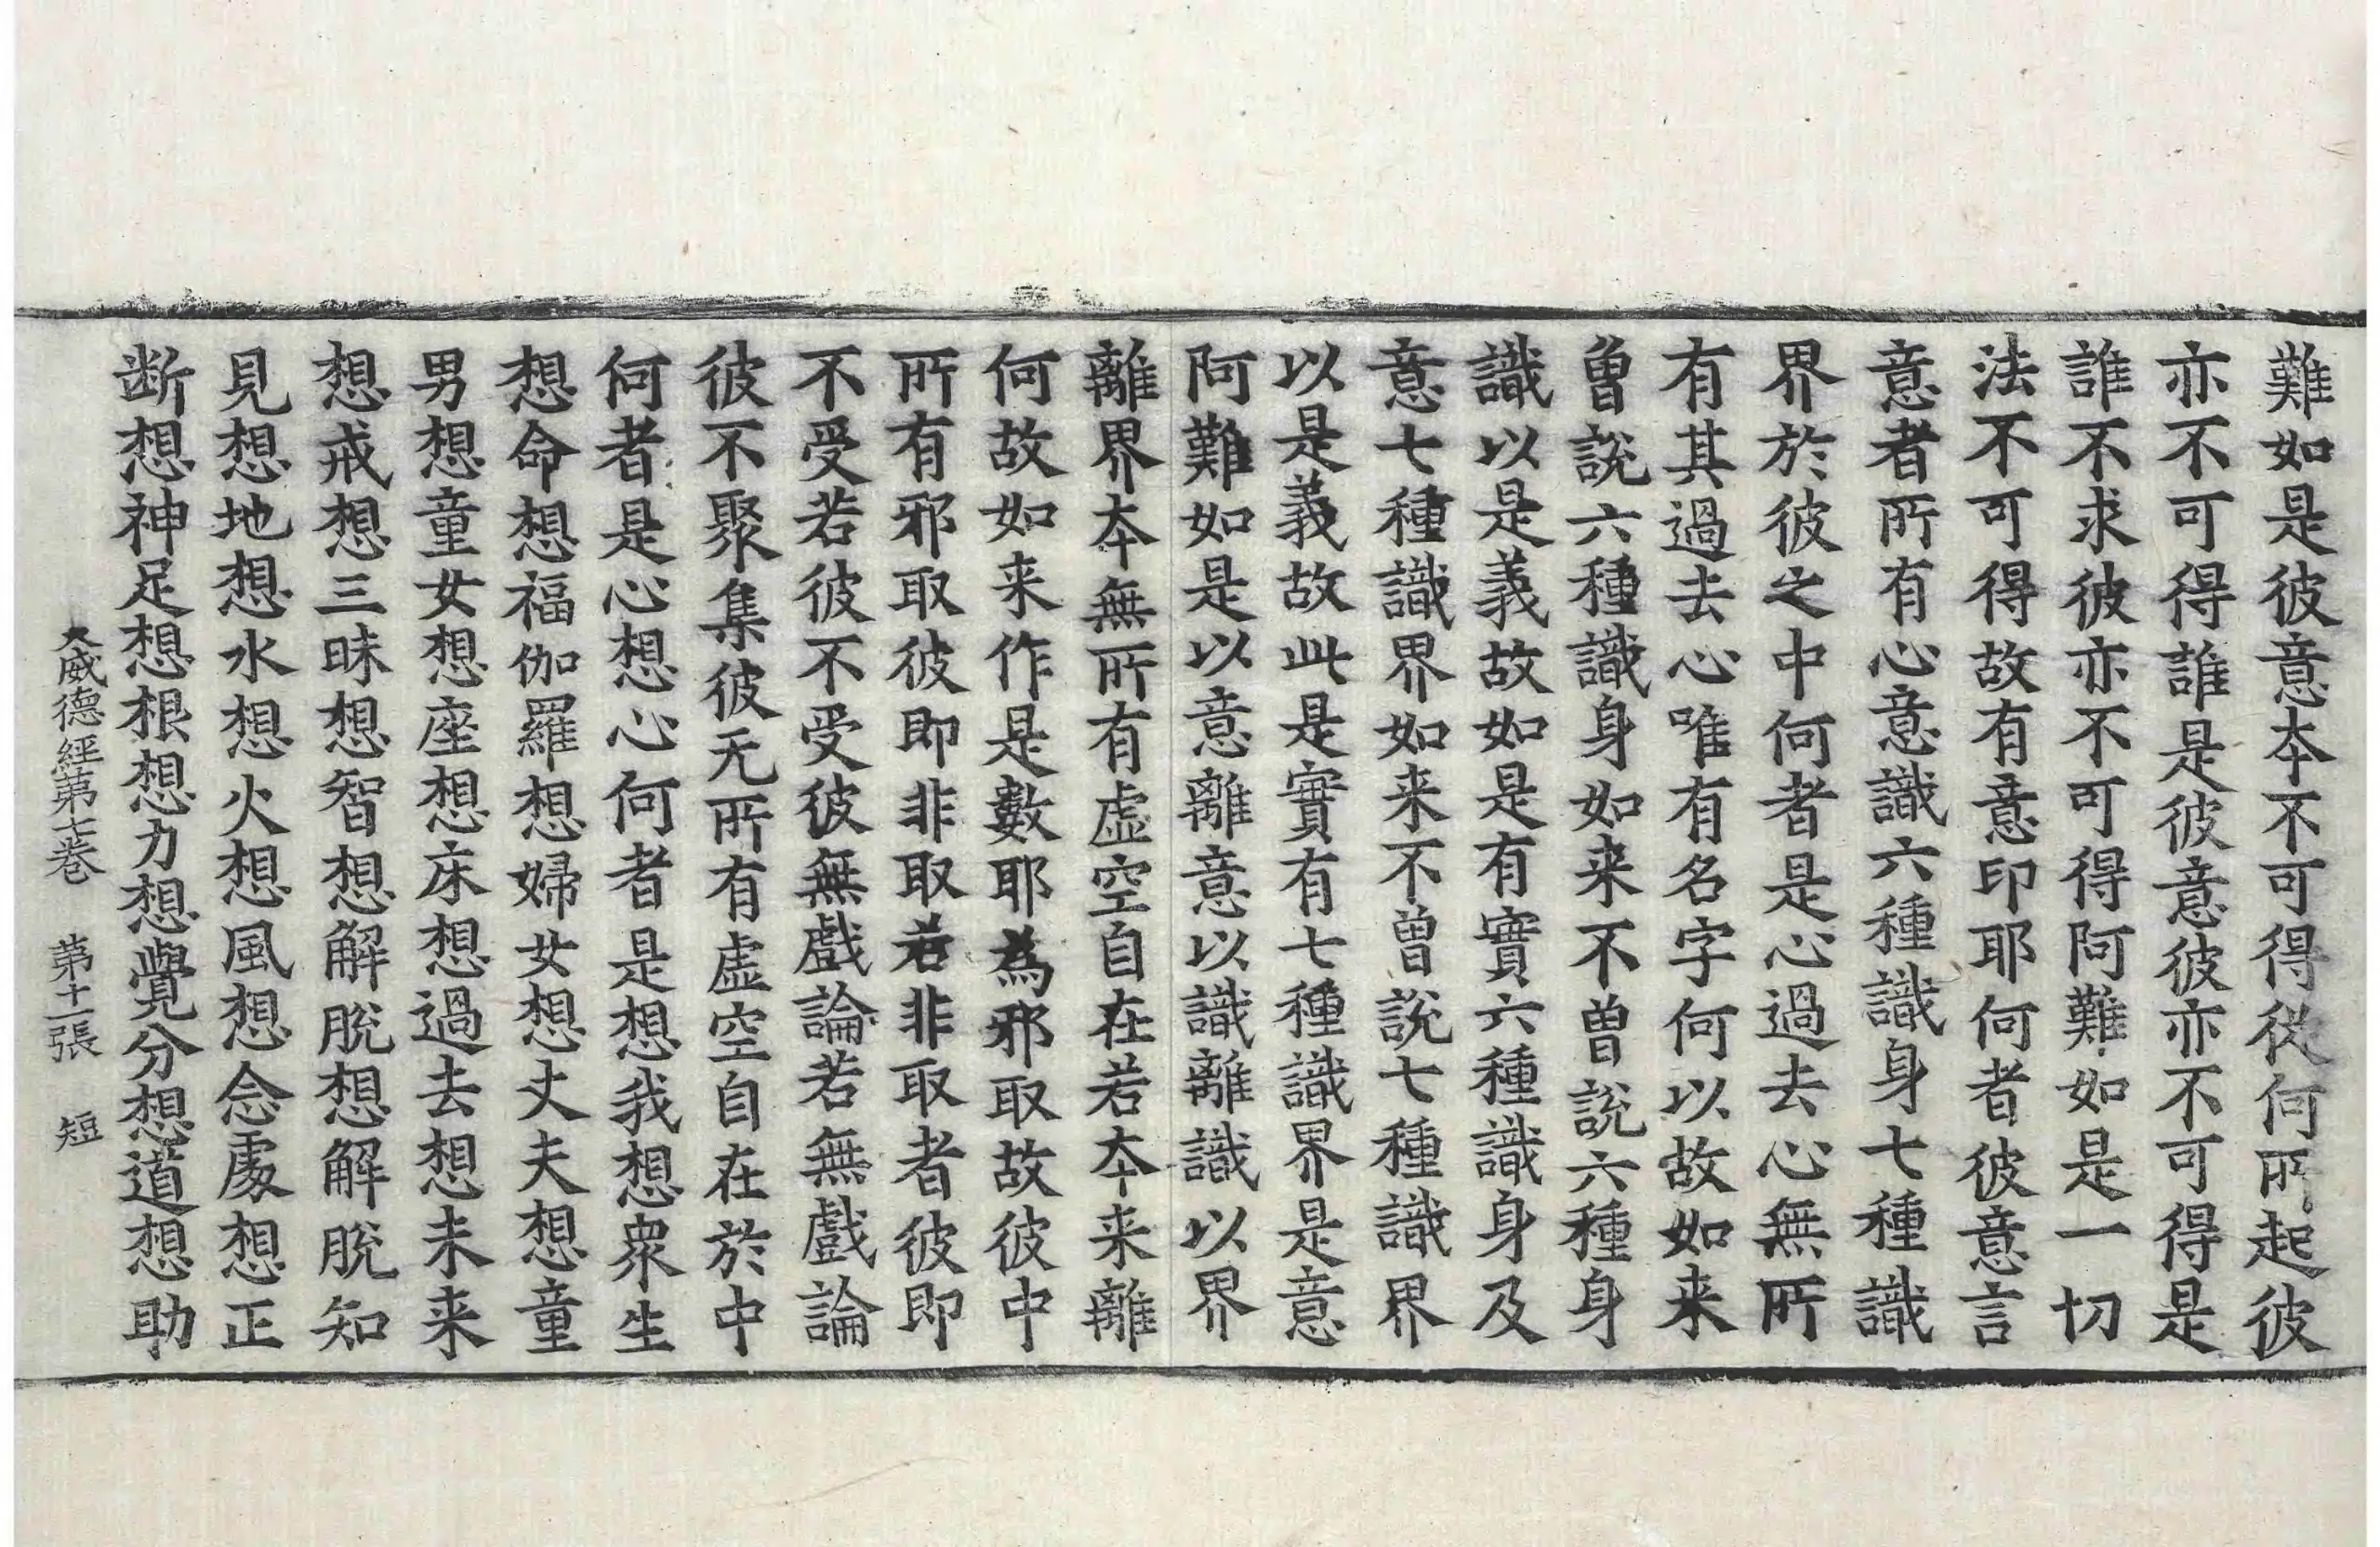 難如是彼意本不可得從何所起彼
亦不可得誰是彼意彼亦不可得是
誰不求彼亦不可得阿難如是一切
法不可得故有意印耶何者彼意言
意者所有心意識六種識身七種識
界於彼之中何者是心過去心無所
有其過去心唯有名字何以故如来
曾說六種識身如来不曾說六種身
識以是義故如是有實六種識身及
意七種識界如来不曾說七種識界
以是義故此是實有七種識界是意
阿難如是以意離意以識離識以界
離界本無所有虛空自在若本来離
何故如来作是數耶為邪取故彼中
所有邪取彼即非取若非取者彼即
不受若彼不受彼無戲論若無戲論
彼不聚集彼无所有虛空自在於中
何者是心想心何者是想我想衆生
想命想福伽羅想婦女想丈夫想童
男想童女想座想床想過去想未来
想戒想三昧想智想解脫想解脫知
見想地想水想火想風想念處想正
断想神足想根想力想覺分想道想助
大威德經第七卷　第十一張　短